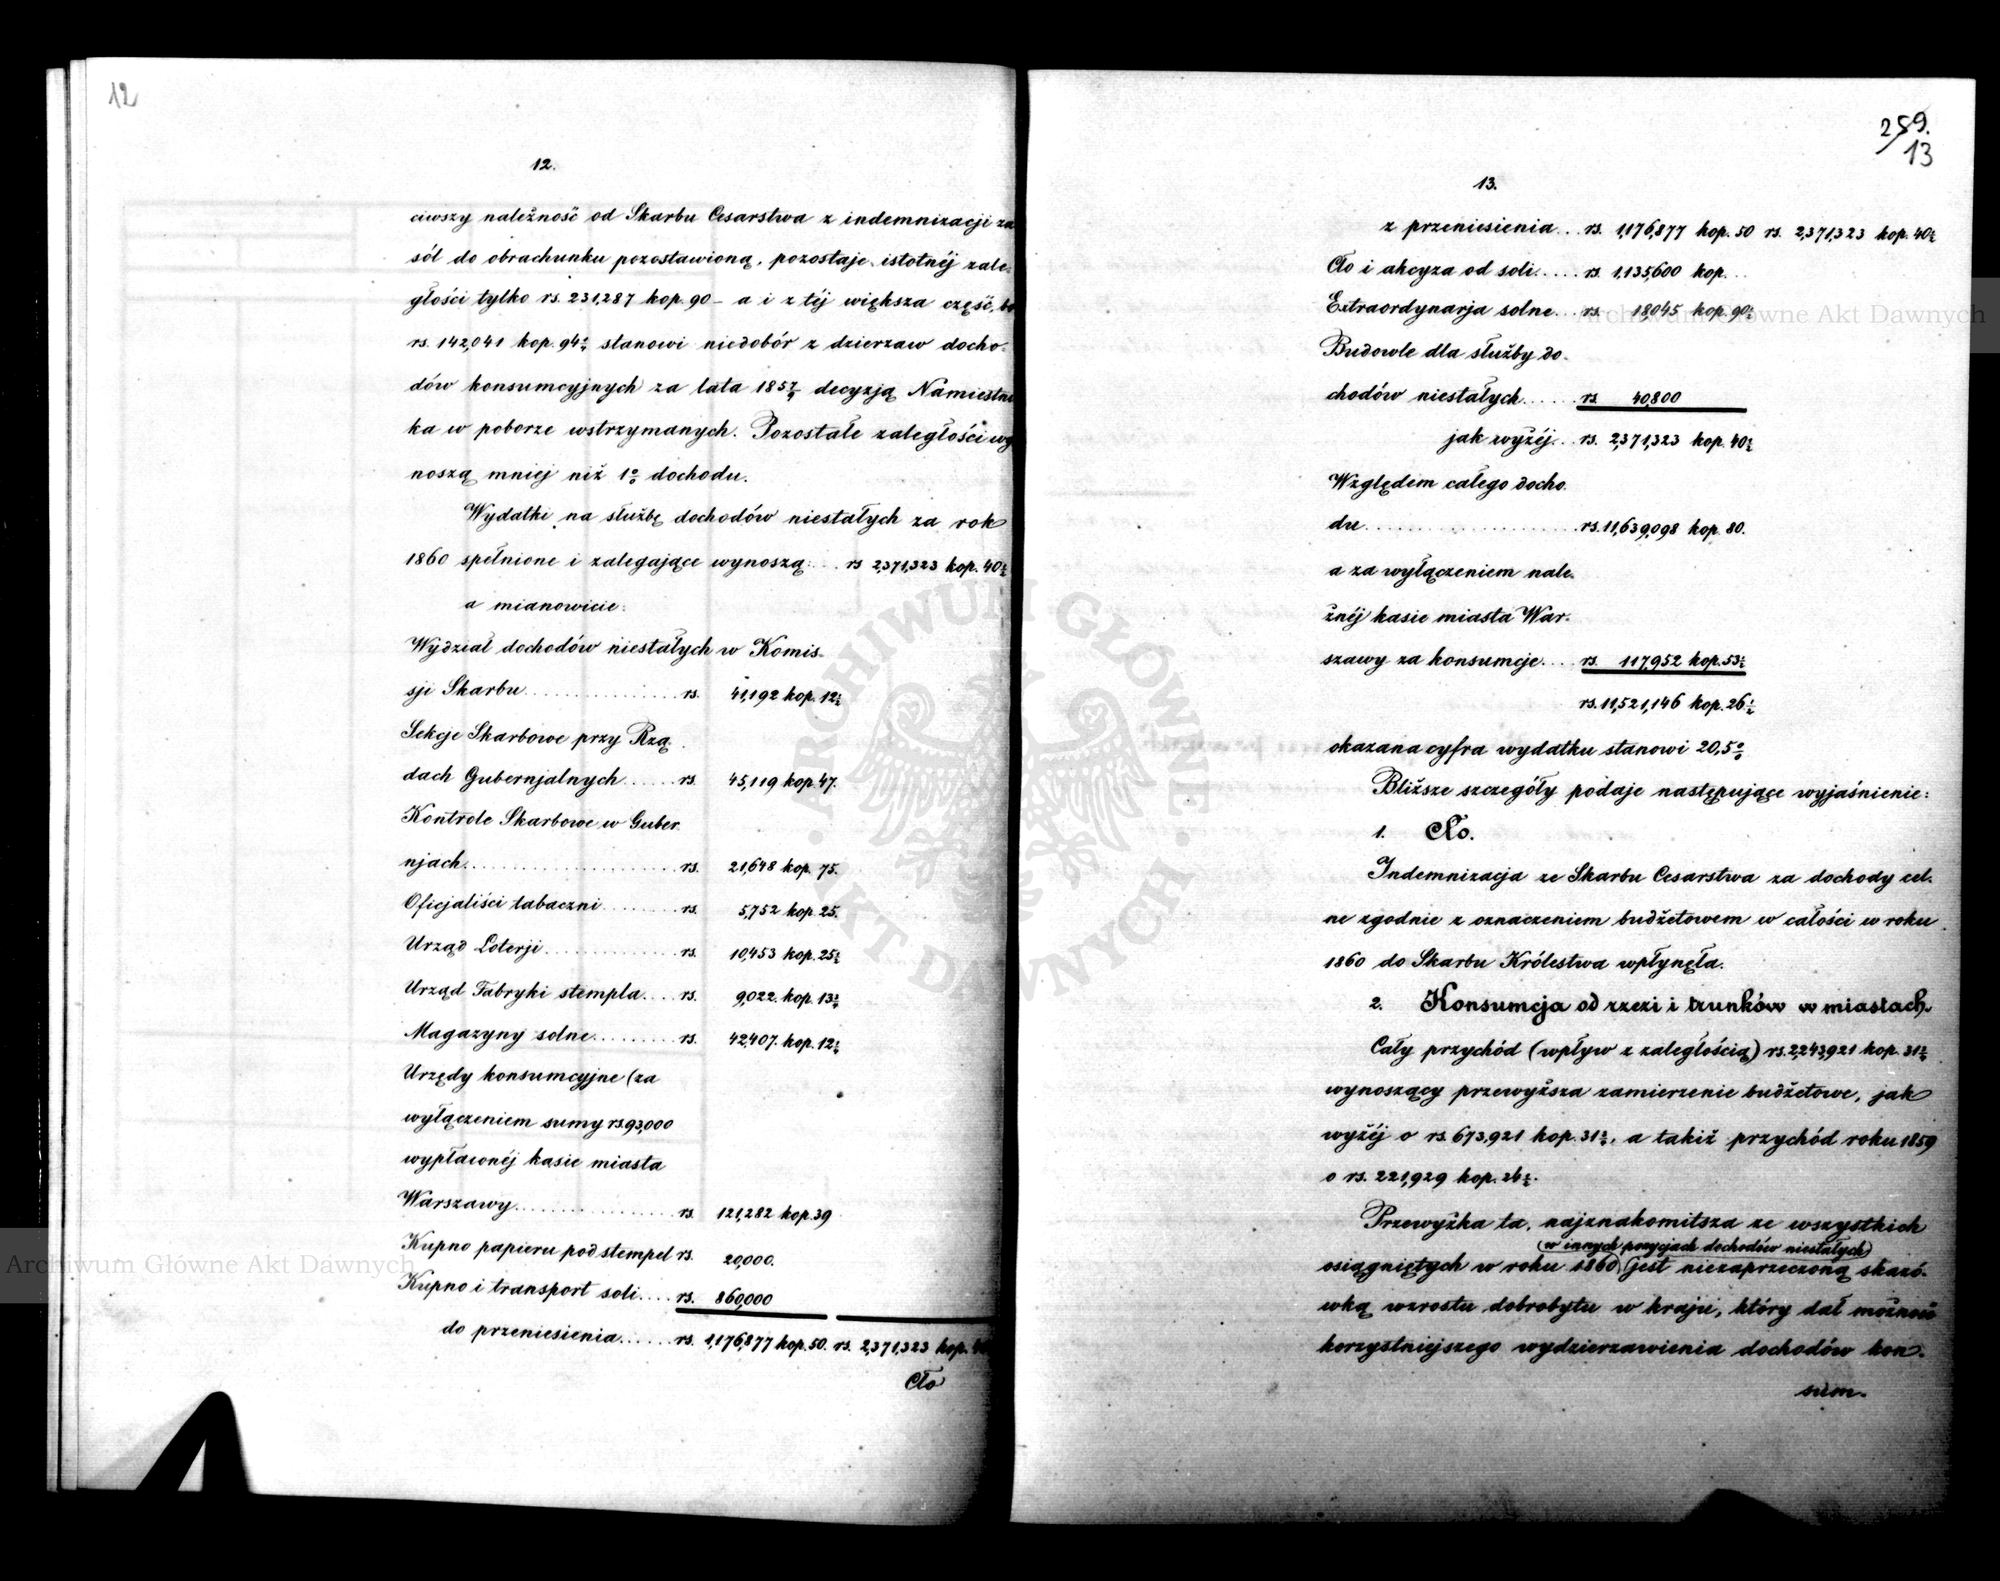 12
12.
ciwszy należność od Skarbu Cesarstwa z indemnizacji za
sól do obrachunku pozostawioną, pozostaje istotnéj zale-
głości tylko rs. 231,287 kop. 90 – a i z téj większa część, bo
rs. 142,041 kop. 94½ stanowi niedobór z dzierzaw docho-
dów konsumcyjnych za lata 1857/9 decyzją Namiestni
ka w poborze wstrzymanych. Pozostałe zaległości wy
noszą mniej niż 1% dochodu.
Wydatki na służbę dochodów niestałych za rok
1860 spełnione i zalegające wynoszą .... rs 2,371,323 kop. 40½
a mianowicie:
Wydział dochodów niestałych w Komis-
sji Skarbu ............... rs. 41,192 kop. 12½
Sekcje Skarbowe przy Rzą-
dach Gubernjalnych ...... rs. 45,119 kop. 47.
Kontrole Skarbowe w Guber
njach .................... rs. 21,648 kop. 75.
Oficjaliści tabaczni ........ rs. 5,752 kop. 25.
Urząd Loterji ............. rs. 10,453 kop. 25½
Urząd Fabryki stempla .... rs. 9,022. kop. 13½
Magazyny solne .......... rs. 42,407. kop. 12½
Urzędy konsumcyjne (za
wyłączeniem sumy rs. 93,000
wypłaconéj kasie miasta
Warszawy ................ rs. 121,282 kop. 39
Kupno papieru pod stempel rs. 20,000.
Kupno i transport soli .... rs. 860,000
do przeniesienia ...... rs. 1,176,877 kop. 50. rs. 2,371,323 kop. 40
Cło
259.
13
13.
z przeniesienia ... rs. 1,176,877 kop. 50 rs. 2,371,323 kop. 40½
Cło i akcyza od soli ..... rs. 1,135,600 kop. ...
Extraordynarja solne .. rs. 18,045 kop. 90½
Budowle dla służby do-
chodów niestałych ...... rs. 40,800
jak wyżéj ... rs. 2,371,323 kop. 40½
Względem całego docho-
du ...................... rs. 11,639,098 kop. 80.
a za wyłączeniem nale-
żnéj kasie miasta War-
szawy za konsumcje .... rs. 117,952 kop. 53½
rs. 11,521,146 kop. 26½
okazana cyfra wydatku stanowi 20,5%
Bliższe szczegóły podaje następujące wyjaśnienie:
1. Cło.
Indemnizacja ze Skarbu Cesarstwa za dochody cel-
ne zgodnie z oznaczeniem budżetowem w całości w roku
1860 do Skarbu Królestwa wpłynęła.
2. Konsumcja od rzezi i trunków w miastach.
Cały przychód (wpływ z zaległością) rs. 2,243,921 kop. 31½
wynoszący przewyższa zamierzenie budżetowe, jak
wyżéj o rs. 673,921 kop. 31½, a takiż przychód roku 1859
o rs. 221,929 kop. 26½.
Przewyżka ta, najznakomitsza ze wszystkich
(w innych pozycjach dochodów niestałych)
osiągniętych w roku 1860 jest niezaprzeczoną skazó-
wką wzrostu dobrobytu w kraju, który dał możność
korzystniejszego wydzierzawienia dochodów kon-
sum-
Archiwum Główne Akt Dawnych
Archiwum Główne Akt Dawnych
ARCHIWUM GŁÓWNE · AKT DAWNYCH ·